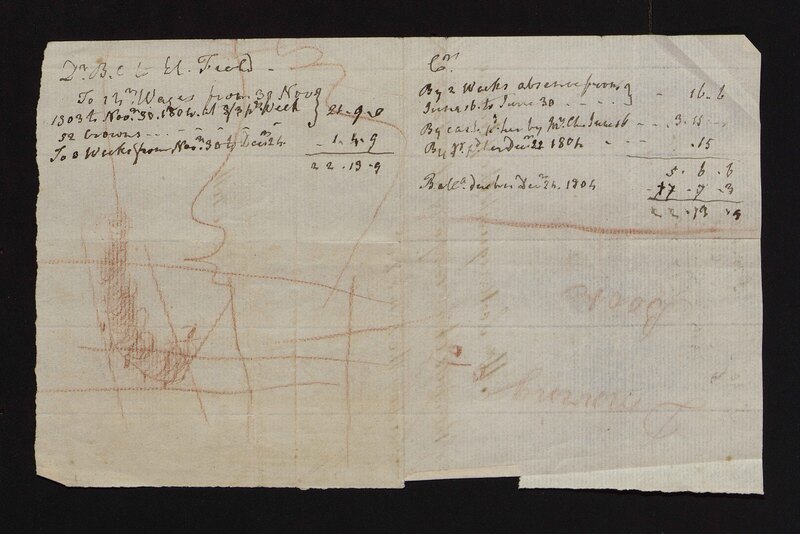 Dr. B. C to El. Field
To 12 ms Wages from 30 Novr
1803 to Novr. 30. 1804. at 8/3 pr Week } 21 . 9 . 0
52 Crowns
To Weeks from Novr. 30 to Decr. 24 - 1 . 4 . 9
22 . 13 . 9
Cr.
By 2 Weeks absence from
June 16. to June 30 } - 16 . 6
By cash pd her by Mr. Ch. June 16 - 3 . 15 -
By Do. pd her Decr. 22 1804 - . 15
5 . 6 . 6
Balla. due her Decr. 24. 1804 - 17 . 7 . 3
22 . 13 . 9
Drawing
Book